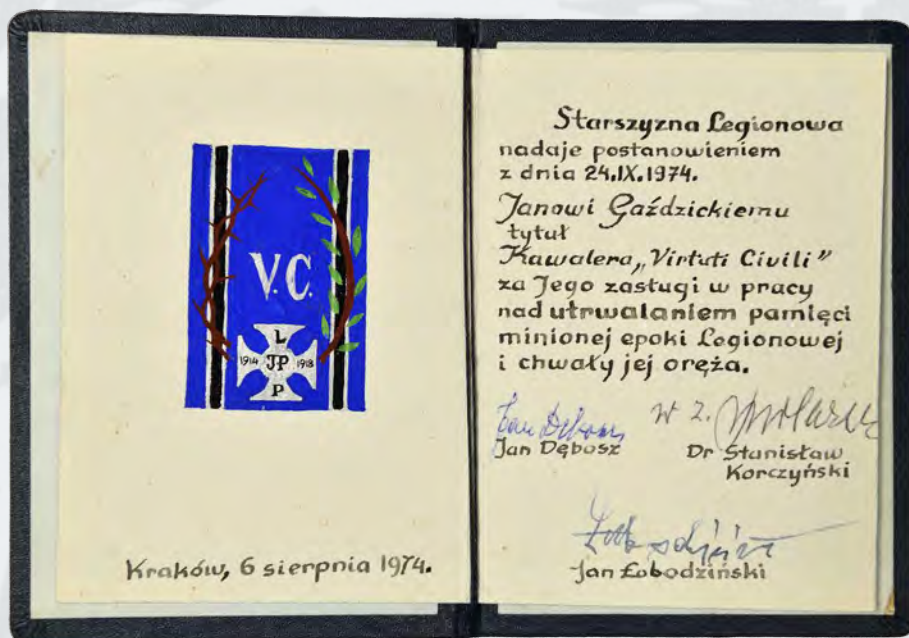 V.C.
L
1914 JP 1918
P
Kraków, 6 sierpnia 1974.
Starszyzna Legionowa
nadaje postanowieniem
z dnia 24.IX.1974.
Janowi Gaździckiemu
tytuł
Kawalera „Virtuti Civili”
za Jego zasługi w pracy
nad utrwalaniem pamięci
minionej epoki Legionowej
i chwały jej oręża.
w z.
Jan Dębosz
Dr Stanisław
Korczyński
Jan Łobodziński